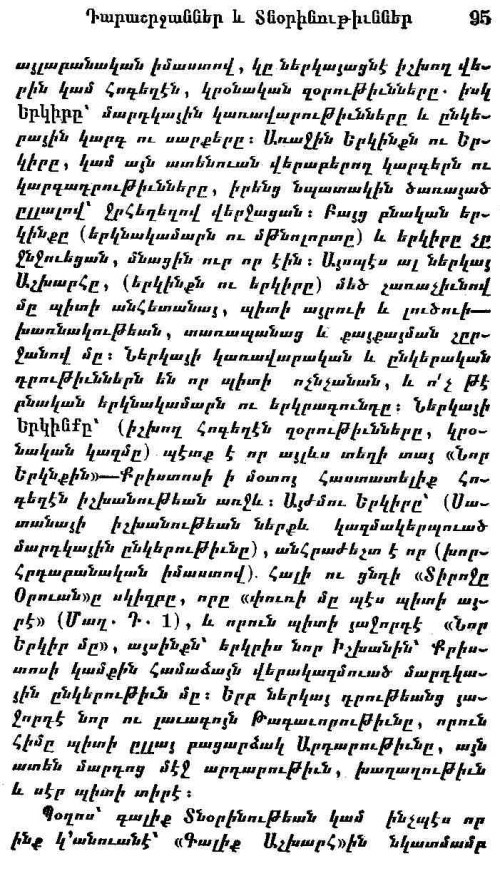 Դարաշրջաններ և Տնօրինութիւններ 95
այլաբանական իմաստով, կը ներկայացնէ իշխող վե-
րին կամ հոգեղէն, կրօնական զօրութիւնները. իսկ
Երկիրը՝ մարդկային կառավարութիւնները և ընկե-
րային կարգ ու սարքերը։ Առաջին Երկինքն ու Եր-
կիրը, կամ այն ատենուան վերաբերող կարգերն ու
կարգադրութիւնները, իրենց նպատակին ծառայած
ըլլալով՝ ջրհեղեղով վերջացան։ Բայց բնական եր-
կինքը (երկնակամարն ու մթնոլորտը) և երկիրը չը
ջնջուեցան, մնացին ուր որ էին։ Այսպէս ալ ներկայ
Աշխարհը, (երկինքն ու երկիրը) մեծ շառաչիւնով
մը պիտի անհետանայ, պիտի այրուի և լուծուի—
խառնակութեան, տառապանաց և քայքայման շըր-
ջանով մը։ Ներկայի կառավարական և ընկերական
դրութիւններն են որ պիտի ոչնչանան, և ո՛չ թէ
բնական երկնակամարն ու երկրագունդը։ Ներկայի
Երկինքը՝ (իշխող հոգեղէն զօրութիւնները, կրօ-
նական կազմը) պէտք է որ այլևս տեղի տայ «Նոր
Երկնքին»—Քրիստոսի ի մօտոյ հաստատելիք հո-
գեղէն իշխանութեան առջև։ Այժմու Երկիրը՝ (Սա-
տանայի իշխանութեան ներքև կազմակերպուած
մարդկային ընկերութիւնը), անհրաժեշտ է որ (խոր-
հրդաբանական իմաստով) հալի ու ցնդի «Տիրոջը
Օրուան»ը սկիզբը, որը «փուռի մը պէս պիտի այ-
րէ» (Մաղ. Դ. 1), և որուն պիտի յաջորդէ «Նոր
Երկիր մը», այսինքն՝ երկրիս նոր Իշխանին՝ Քրիս-
տոսի կամքին համաձայն վերակազմուած մարդկա-
յին ընկերութիւն մը։ Երբ ներկայ դրութեանց յա-
ջորդէ նոր ու լաւագոյն Թագաւորութիւնը, որուն
հիմը պիտի ըլլայ բացարձակ Արդարութիւնը, այն
ատեն մարդոց մէջ արդարութիւն, խաղաղութիւն
և սէր պիտի տիրէ։
Պօղոս՝ գալիք Տնօրինութեան կամ ինչպէս որ
ինք կ’անուանէ՝ «Գալիք Աշխարհ»ին նկատմամբ